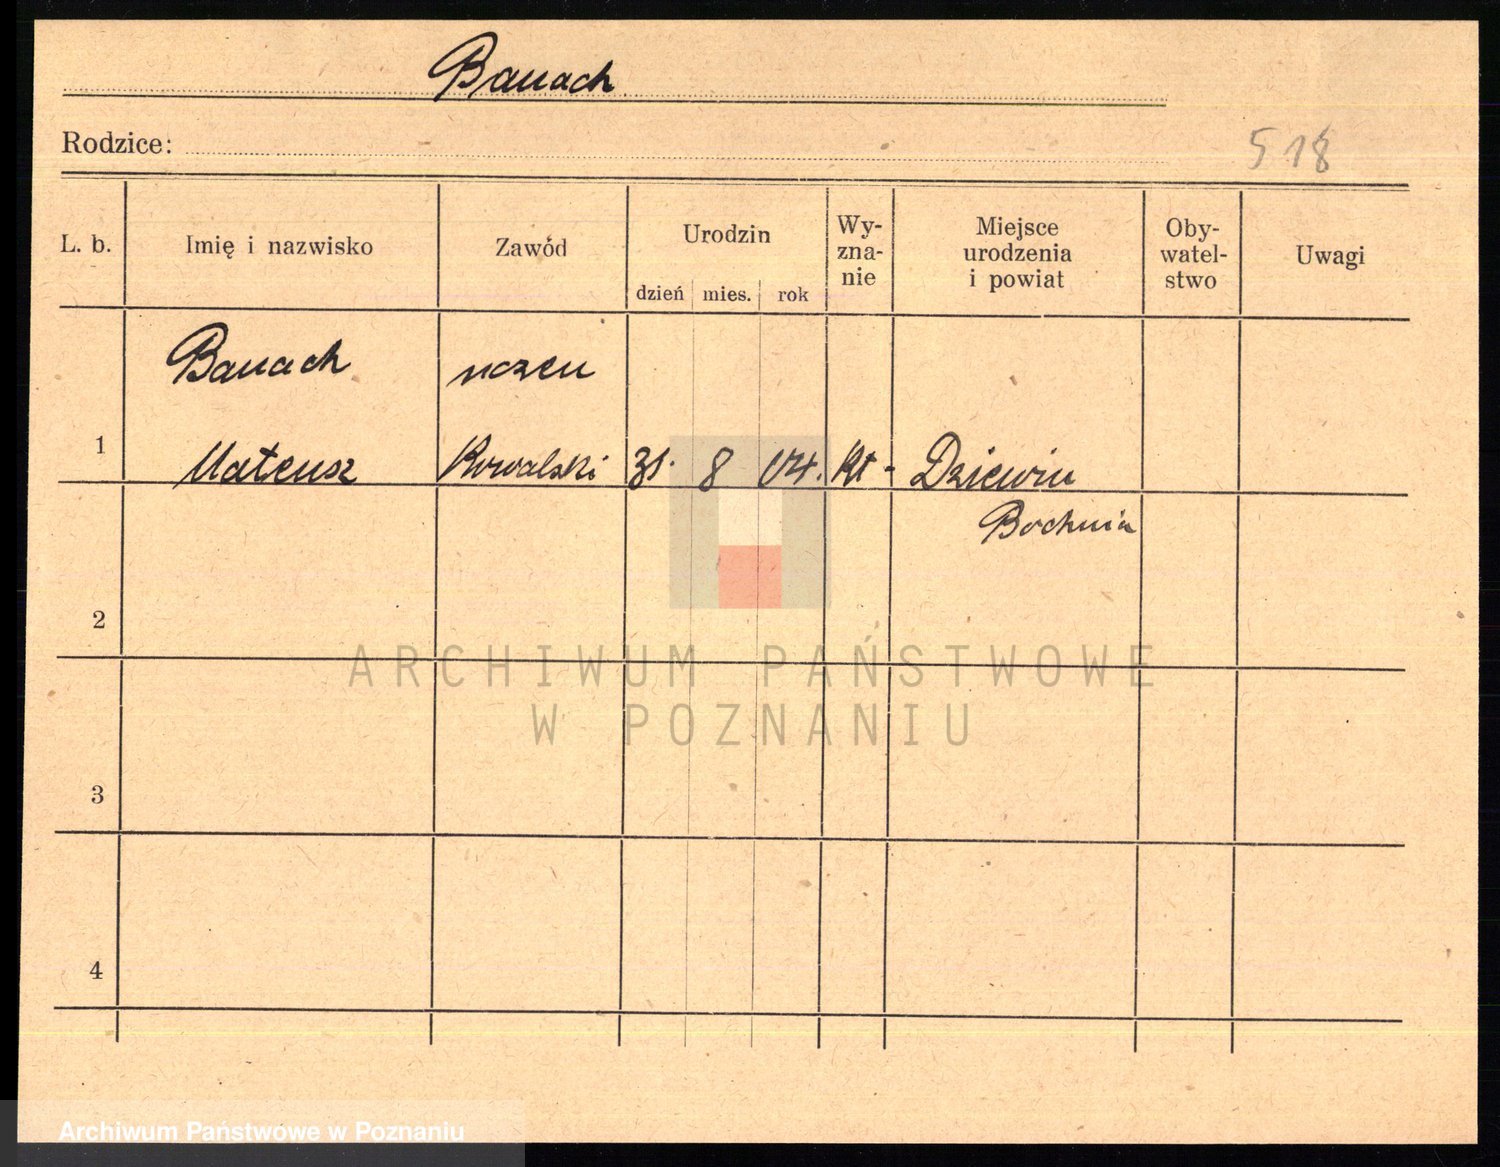 Banach
Rodzice:
518
L. b. Imię i nazwisko Zawód Urodzin dzień mies. rok Wy-zna-nie Miejsce urodzenia i powiat Oby-watel-stwo Uwagi
Banach uczeń
1 Mateusz Kowalski 31. 8 04. Kt - Dziewin
Bochnia
2
ARCHIWUM PAŃSTWOWE
W POZNANIU
3
4
Archiwum Państwowe w Poznaniu